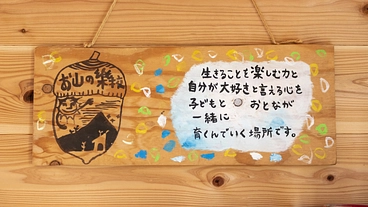 お山の楽校
生きることを楽しむ力と
自分が大好きと言える心を
子どもと おとなが
一緒に
育くんでいく場所です。